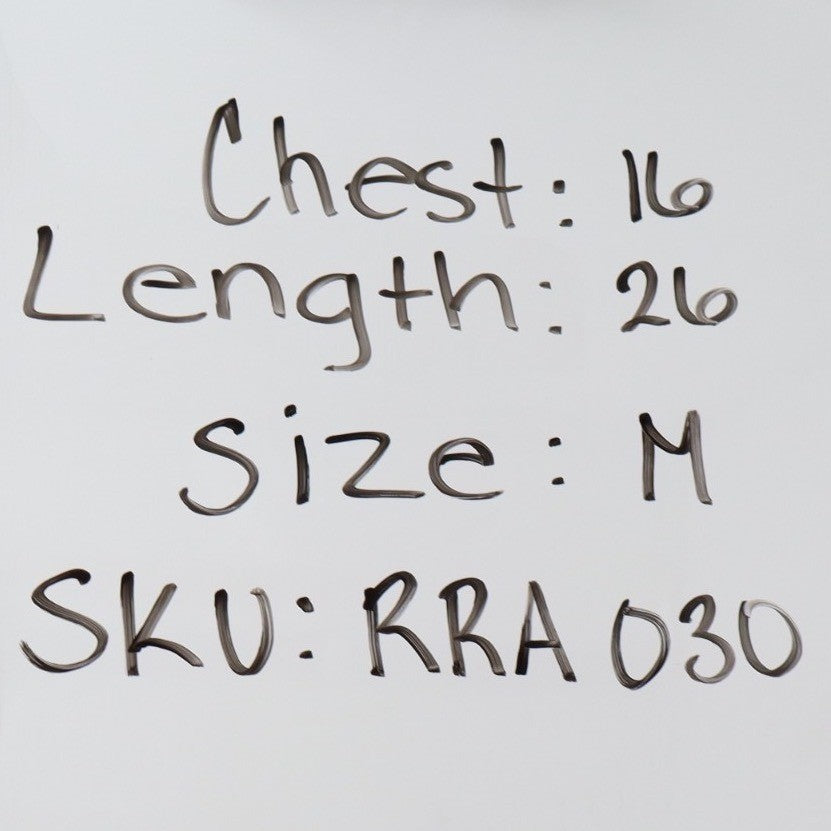 Chest: 16
Length: 26
Size: M
SKU: RRA 030